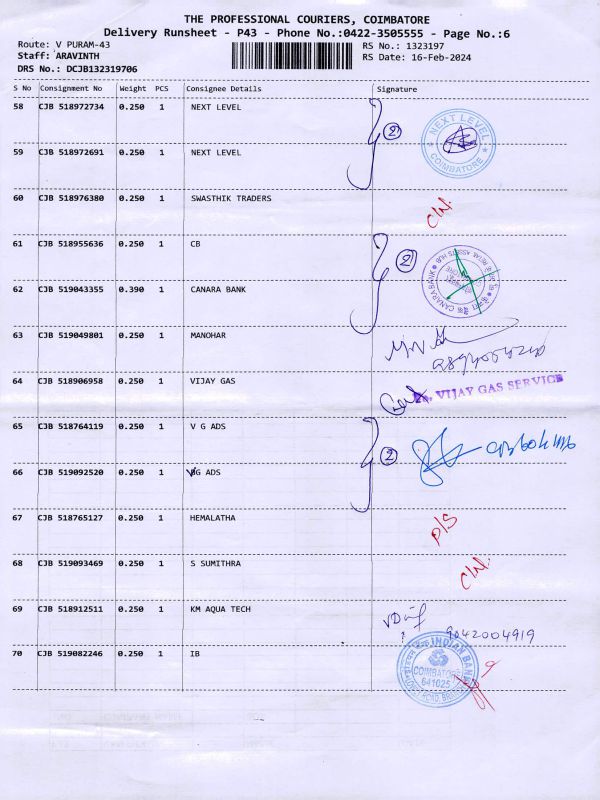 THE PROFESSIONAL COURIERS, COIMBATORE
Delivery Runsheet - P43 - Phone No.:0422-3505555 - Page No.:6
Route: V PURAM-43 RS No.: 1323197
Staff: ARAVINTH RS Date: 16-Feb-2024
DRS No.: DCJB132319706
S No Consignment No Weight PCS Consignee Details Signature
58 CJB 518972734 0.250 1 NEXT LEVEL
2 NEXT LEVEL COIMBATORE
59 CJB 518972691 0.250 1 NEXT LEVEL
60 CJB 518976380 0.250 1 SWASTHIK TRADERS
61 CJB 518955636 0.250 1 CB
2 CANARA BANK
62 CJB 519043355 0.390 1 CANARA BANK
63 CJB 519049801 0.250 1 MANOHAR
64 CJB 518906958 0.250 1 VIJAY GAS VIJAY GAS SERVICE
65 CJB 518764119 0.250 1 V G ADS
2
66 CJB 519092520 0.250 1 VG ADS
67 CJB 518765127 0.250 1 HEMALATHA P/S
68 CJB 519093469 0.250 1 S SUMITHRA
69 CJB 518912511 0.250 1 KM AQUA TECH
9042004919
70 CJB 519082246 0.250 1 IB INDIAN BANK COIMBATORE 641025